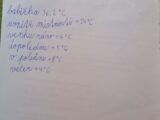 babička 36,2°C
vnitř. místnost = 24°C
venku ráno = 6°C
dopoledne = 5°C
v poledne = 8°C
večer = 4°C